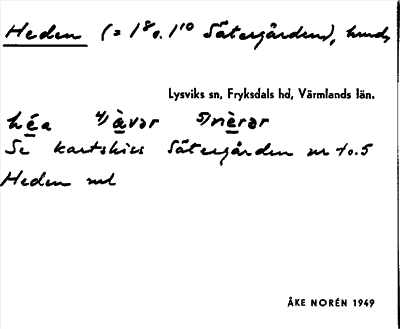 Heden (= 1⁸ o. 1¹⁰ Sätergården), hmd,
Lysviks sn, Fryksdals hd, Värmlands län.
hé̱a 4/) à̱vər 5/) nè̱rər
Se kartskiss Sätergården nr 4 o. 5
Heden
ÅKE NORÉN 1949